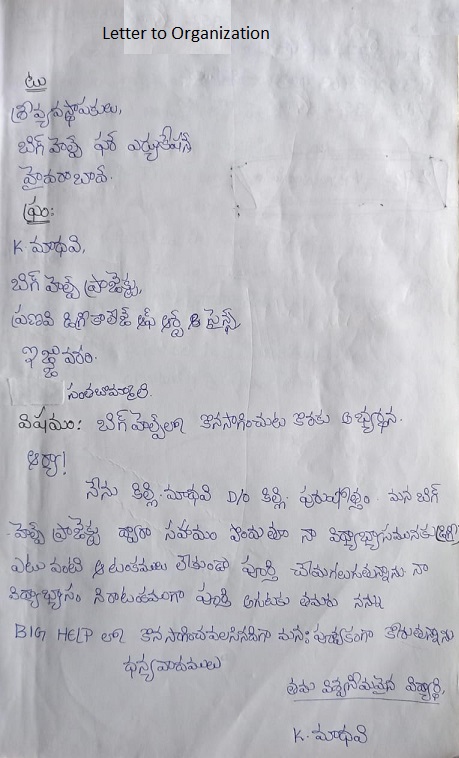 Letter to Organization
టు
శ్రీవ్యవస్థాపకులు,
బిగ్ హెల్ప్ ఫర్ ఎడ్యుకేషన్
హైదరాబాద్.
ఫ్రం:
K. మాధవి,
బిగ్ హెల్ప్ ప్రాజెక్టు,
ప్రణవి డిగ్రీ కాలేజ్ ఆఫ్ ఆర్ట్స్ & సైన్స్
సంతబొమ్మాళి.
విషయం: బిగ్ హెల్ప్‌లో కొనసాగించుట కొరకు అభ్యర్థన.
ఆర్యా!
నేను కిల్లి. మాధవి D/O కిల్లి. పురుషోత్తం. మన బిగ్
హెల్ప్ ప్రాజెక్టు ద్వారా సహాయం పొందుతూ నా విద్యాభ్యాసమునకు (డిగ్రీ)
ఎటువంటి ఆటంకములు లేకుండా పూర్తి చేయగలుగుతున్నాను నా
విద్యాభ్యాసం నిరాటంకంగా పూర్తి అగుటకు తమరు నన్ను
BIG HELP లో కొనసాగించవలసినదిగా మనః పూర్వకంగా కోరుతున్నాను
ధన్యవాదములు
తమ విశ్వసనీయమైన విద్యార్థి,
K. మాధవి